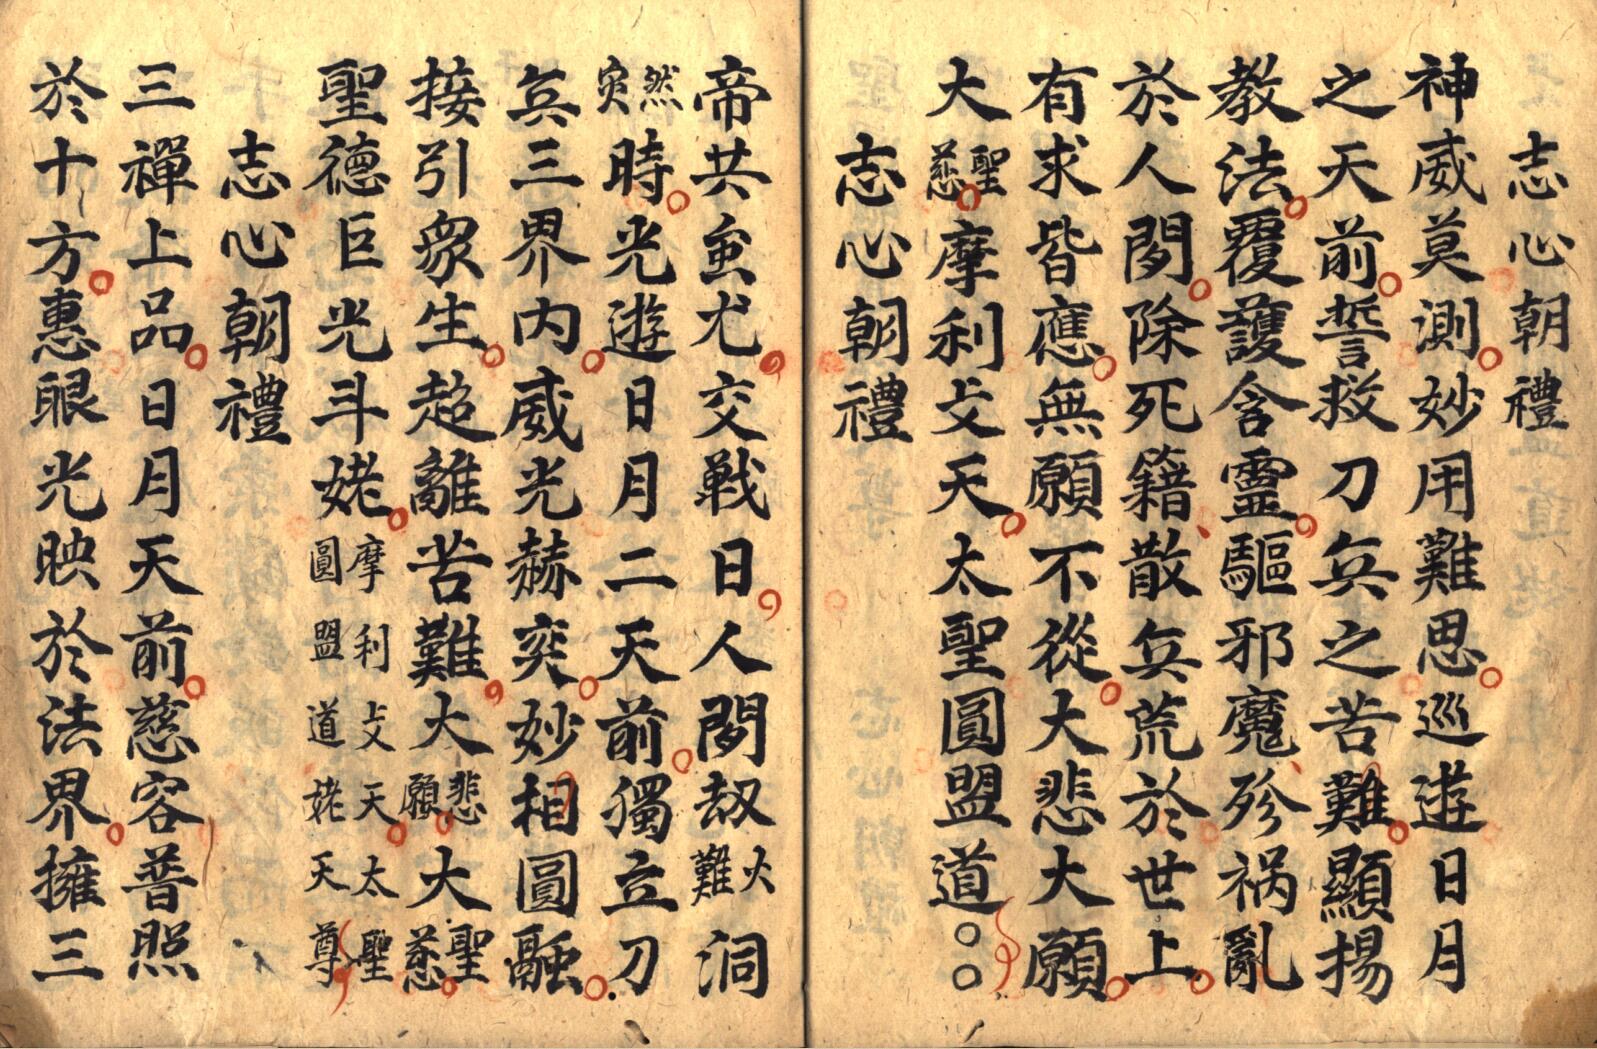 志心朝禮
神威莫測妙用難思巡遊日月
之天前誓救刀兵之苦難顯揚
教法覆護含靈驅邪魔殄祸亂
於人間除死籍散兵荒於世上
有求皆應無願不從大悲大願
大聖慈摩利攴天太聖圓盟道〇〇
志心朝禮
帝共蚩尤交戦日人間劫火難洞
然灾時光遊日月二天前獨立刀
兵三界内威光赫奕妙相圓融
接引衆生超離苦難大悲願大聖慈
聖德巨光斗姥摩利攴天太聖圓盟道姥天尊
志心朝禮
三禪上品日月天前慈容普照
於十方惠眼光映於法界擁三